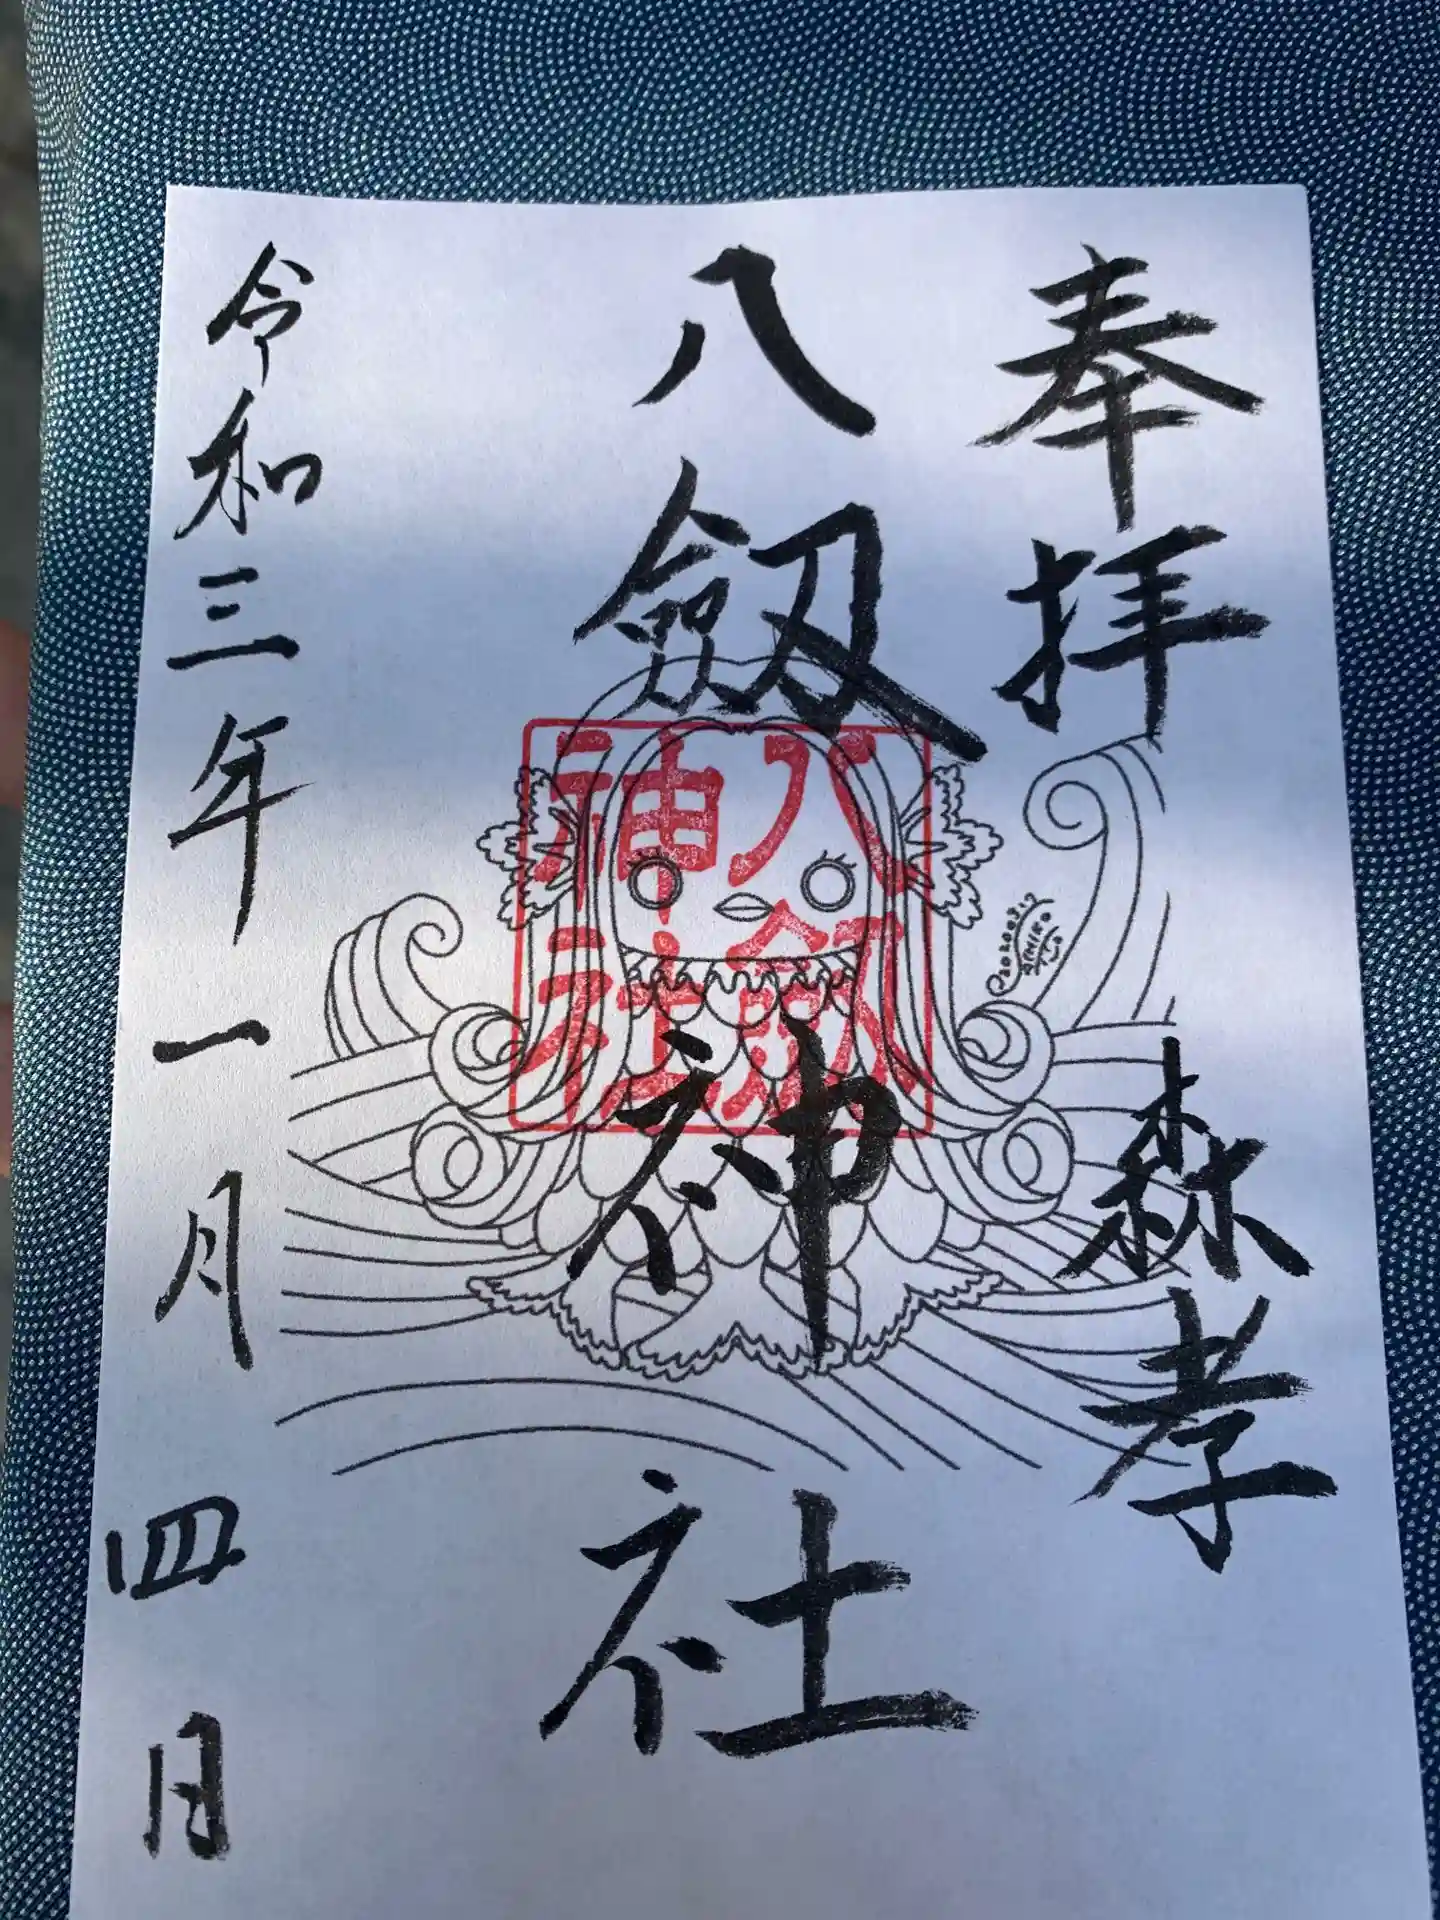 奉拝
森孝
八劔神社
八劔神社
令和三年一月四日